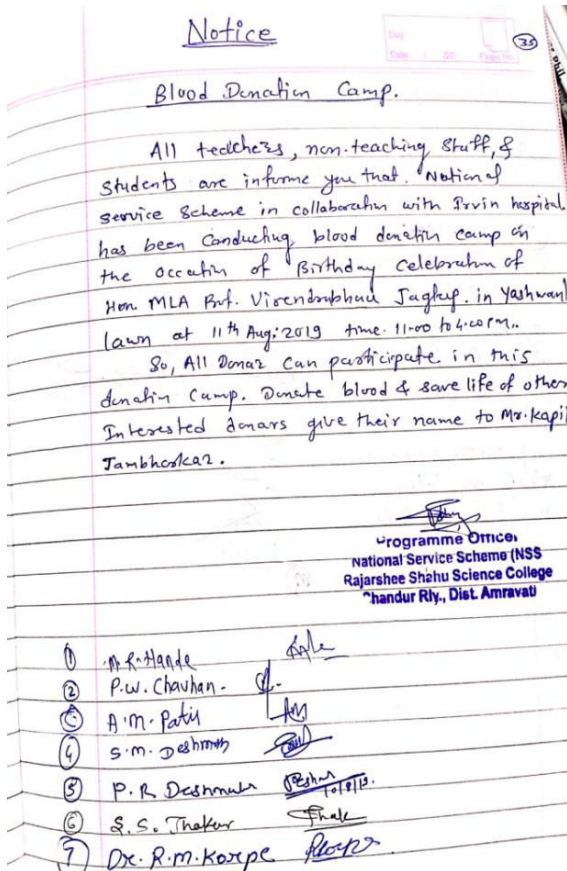 Notice
Day
Date / 20 Page No.
35
Blood Donation Camp.
All teachers, non-teaching staff, &
students are informe you that. National
service scheme in collaboration with Irvin hospital
has been conducting blood donation camp on
the occation of Birthday celebration of
Hon. MLA Prof. Virendrabhau Jagtap. in Yashwant
lawn at 11th Aug. 2019 time. 11.00 to 4.00 pm..
So, All Donar can participate in this
donation camp. Donate blood & save life of other
Interested donars give their name to Mr. Kapil
Jambhorkar.
Programme Officer
National Service Scheme (NSS
Rajarshee Shahu Science College
Chandur Rly., Dist. Amravati
1 M.R. Hande
2 P.W. Chavhan.
A.M. Patil
4 S.M. Deshmukh
5 P.R. Deshmukh
6 S.S. Thakur
7 Dr. R.M. Korpe